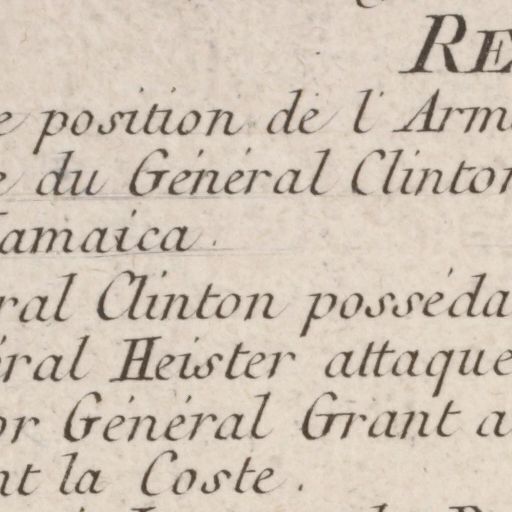 RE
e position de l'Arm
e du Général Clinton
Jamaica.
ral Clinton posséda
éral Heister attaque
or Général Grant a
nt la Coste.